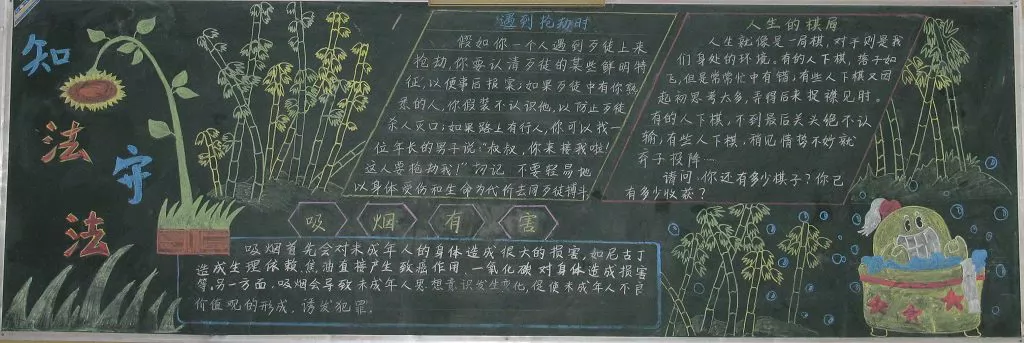 知法守法
遇到抢劫时
假如你一个人遇到歹徒上来
抢劫,你要认清歹徒的某些鲜明特
征,以便事后报案;如果歹徒中有你熟
悉的人,你假装不认识他,以防止歹徒
杀人灭口;如果路上有行人,你可以找一
位年长的男子说:“叔叔,你来接我啦!
这人要抢劫我!”切记 不要轻易地
以身体受伤和生命为代价去同歹徒搏斗
人生的棋局
人生就像是一局棋,对手则是我
们身处的环境。有的人下棋,落子如
飞,但是常常忙中有错;有些人下棋又因
起初思考太多,弄得后来捉襟见肘。
有的人下棋,不到最后关头绝不认
输;有些人下棋,稍见情势不妙就
弃子投降…
请问,你还有多少棋子?你已
有多少收获?
吸烟有害
吸烟首先会对未成年人的身体造成很大的损害,如尼古丁
造成生理依赖,焦油直接产生致癌作用,一氧化碳对身体造成损害
等。另一方面,吸烟会导致未成年人思想意识发生变化,促使未成年人不良
价值观的形成,诱发犯罪。